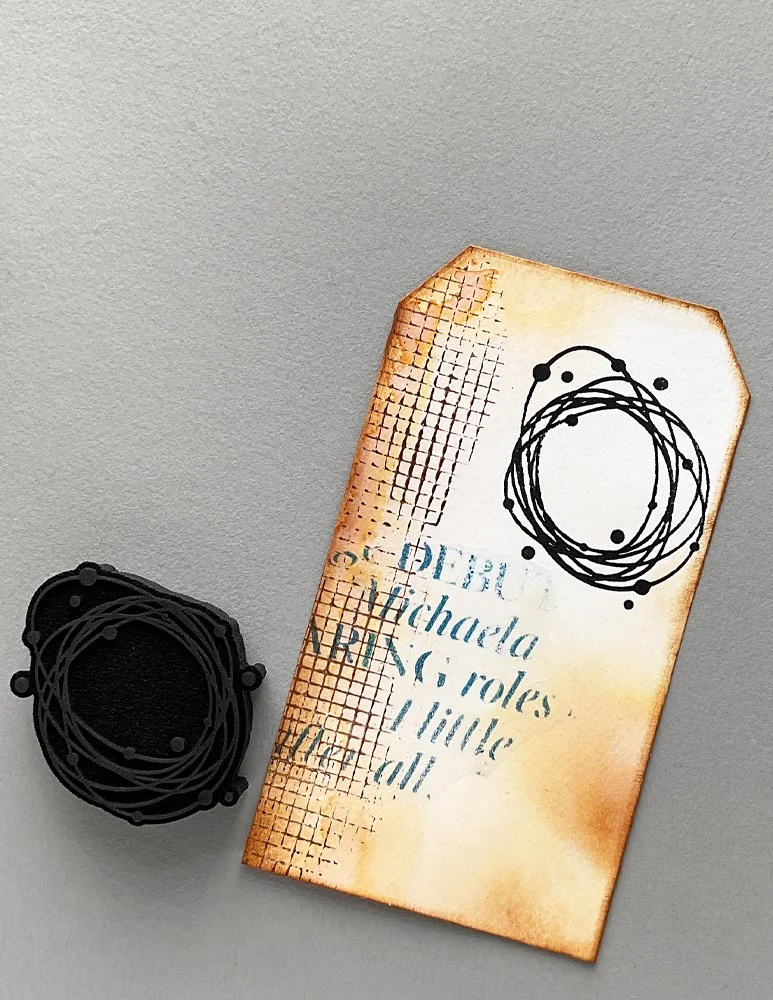 DEBUT
Michaela
ARING roles
I little
after all.